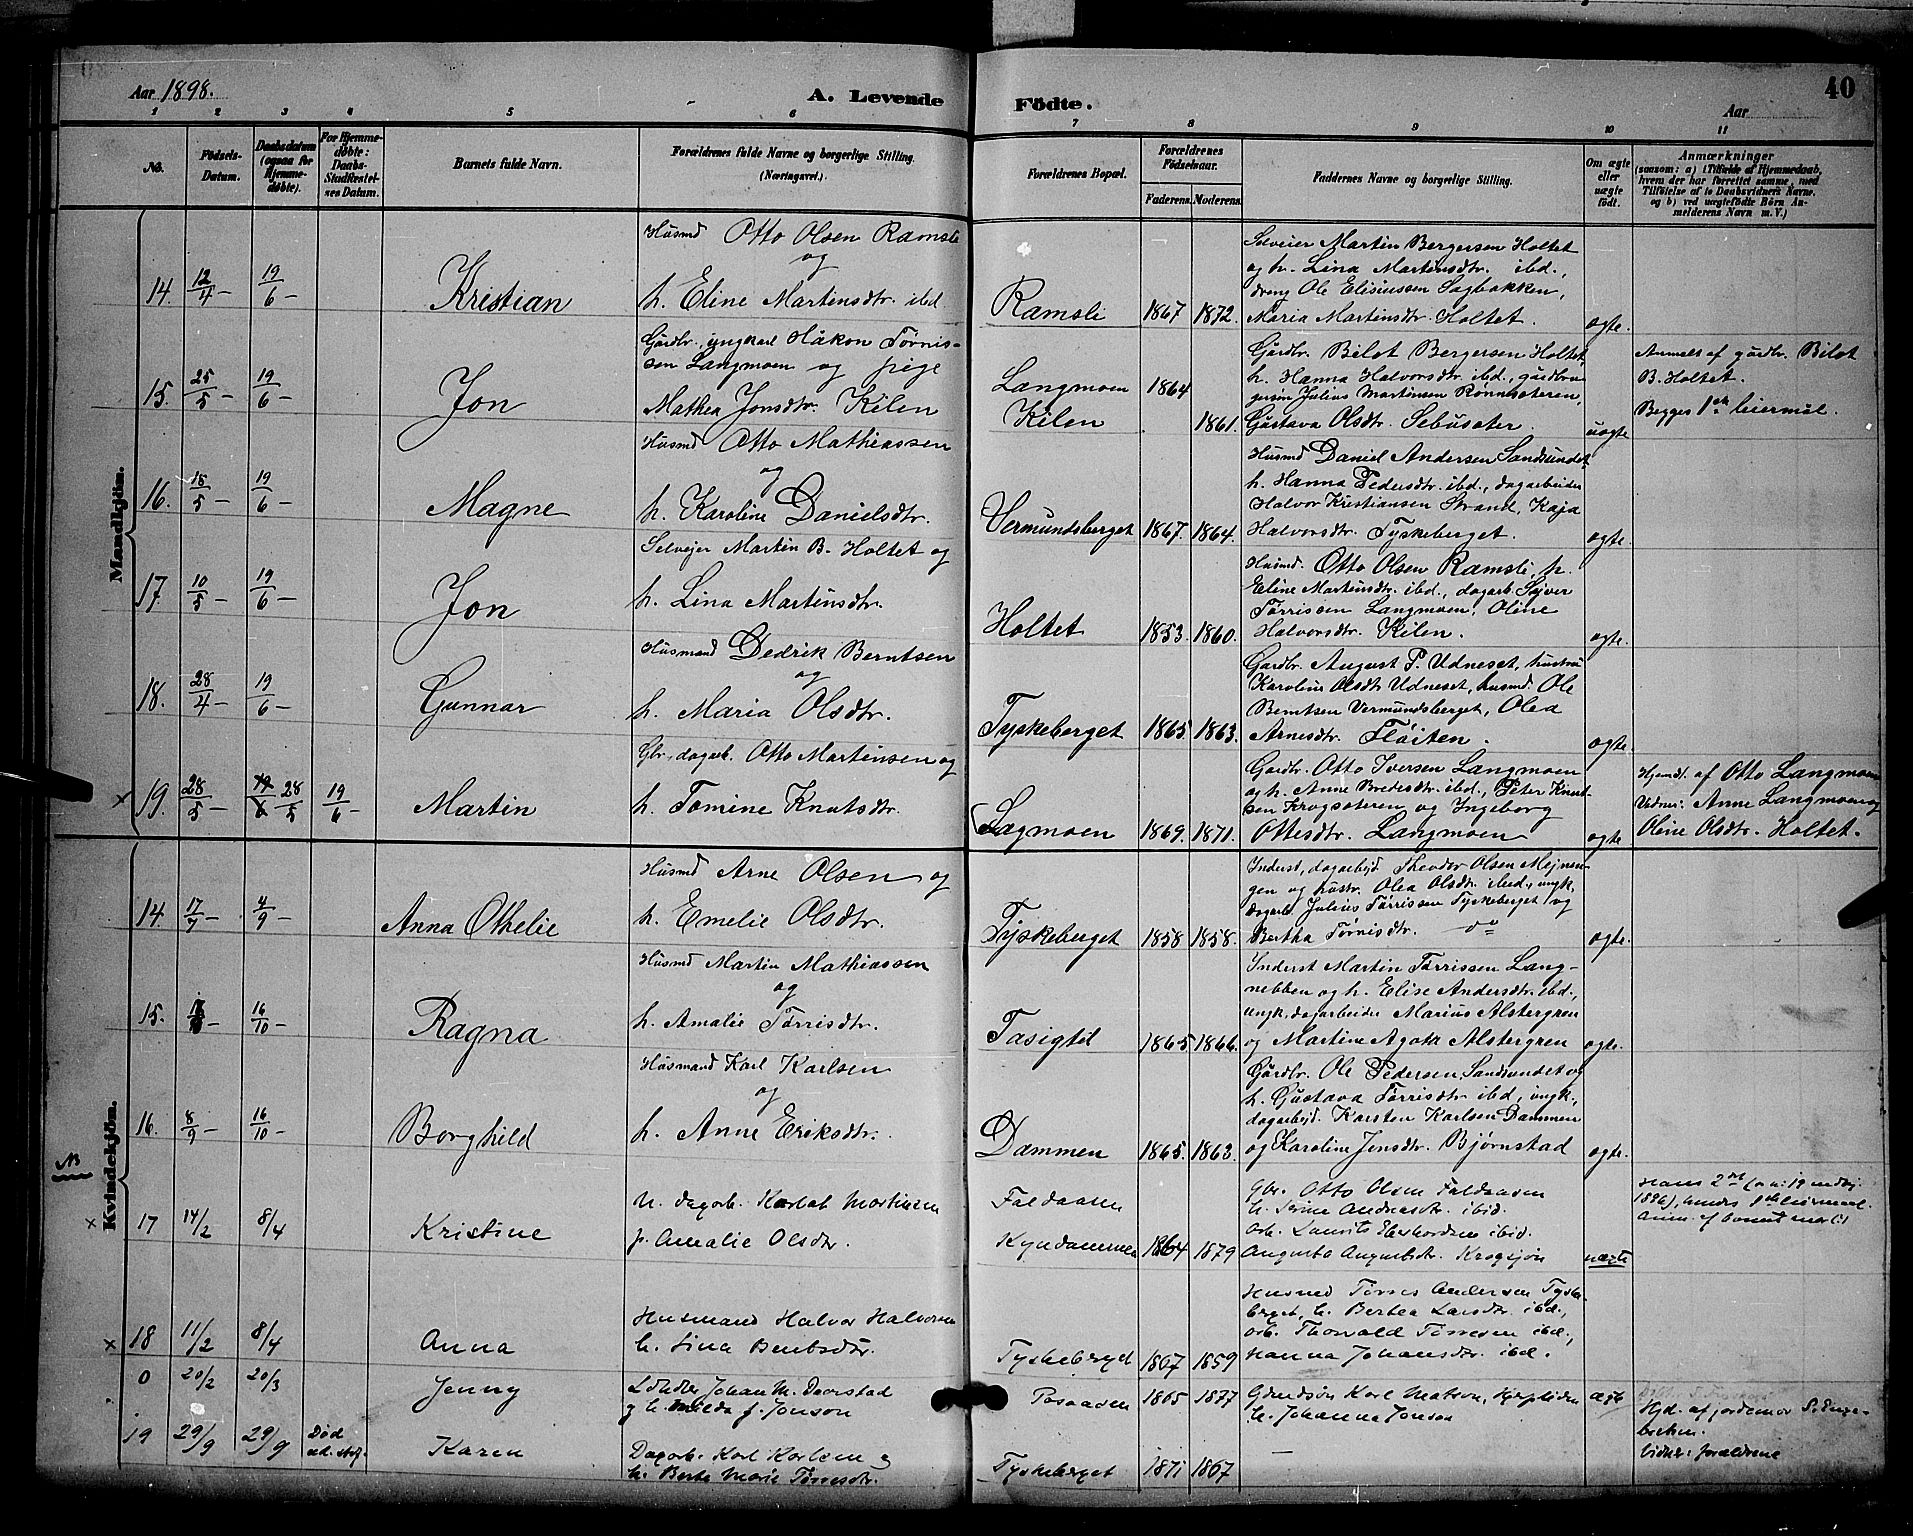 Aar 1898.
A. Levende Födte.
Aar
40
1 2 3 4 5 6 7 8 9 10 11
No.
Födsels-
Datum.
Daabsdatum
(ogsaa for
Hjemme-
døbte).
For Hjemme-
døbte:
Daabs-
Stadfæstel-
ses Datum.
Barnets fulde Navn.
Forældrenes fulde Navne og borgerlige Stilling.
(Næringsvei.)
Forældrenes Bopæl.
Forældrenes
Födselsaar.
Faderens. Moderens.
Faddernes Navne og borgerlige Stilling.
Om ægte
eller
uægte
födt.
Anmærkninger
(saasom: a) i Tilfælde af Hjemmedaab,
hvem der har forrettet samme, med
Tilföielse af to Daabsvidners Navne.
og b) ved uægtefödte Börn An-
melderens Navn m. V.)
Mandkjön.
14. 12/4 – 19/6 – Kristian
Husmd Otto Olsen Ramsli
og
h. Eline Martinsdtr. ibd
Ramsli 1867 1872.
Selveier Martin Bergersen Holtet
og h. Lina Martinsdtr. ibd.,
dreng Ole Elisiussen Sagbakken,
Maria Martinsdtr. Holtet.
ægte.
15. 25/5 – 19/6 – Jon
Gårdbr., ungkarl Håkon Tørris-
sen Langmoen og pige
Mathea Jonsdtr. Kilen
Langmoen 1864
Kilen 1861.
Gårdbr. Bilot Bergersen Holtet,
h. Hanna Halvorsdtr. ibd., gårdbru-
gersøn Julius Martinsen Rønnesæteren,
Gustava Olsdtr. Sebusæter.
uægte
Anmelt af gårdbr. Bilot
B. Holtet.
Begges 1ste leiermål.
16. 15/5 – 19/6 – Magne
Husmd Otto Mathiassen
og
h. Karoline Danielsdtr.
Vermundsberget 1867. 1864.
Husmd Daniel Andersen Sandsundet
h. Hanna Pedersdtr. ibd., dagarbeider
Halvor Kristiansen Strand, Kaja
Halvorsdtr. Tyskeberget.
ægte.
17. 10/5 – 19/6 – Jon
Selveier Martin B. Holtet og
h. Lina Martinsdtr.
Holtet 1853. 1860.
Husmd. Otto Olsen Ramsli, h.
Eline Martinsdtr. ibd., dagarb. Syver
Tørrissen Langmoen, Oline
Halvorsdtr. Kilen.
ægte.
18. 28/4 – 19/6 – Gunnar
Husmand Dedrik Berntsen
og
h. Maria Olsdtr.
Tyskeberget 1865. 1863.
Gårdbr. August P. Udneset, hustru
Karoline Olsdtr Udneset, husmd. Ole
Berntsen Vermundsberget, Olea
Arnesdtr. Fløiten.
ægte.
× 19. 28/5 – 19/6 28/5 19/6 – Martin
Gbr., dagarb. Otto Martinsen og
h. Tomine Knutsdtr.
Lagmoen 1869. 1871.
Gårdbr. Otto Iversen Langmoen
og h. Anne Bredesdtr. ibd., Peter Knut-
sen Krogsæteren og Ingeborg
Ottesdtr. Langmoen
ægte
Hjemdt. af Otto Langmoen
Vidner: Anne Langmoen og
Oline Olsdtr. Holtet.
Kvindekjön.
14. 17/7 – 4/9 – Anna Othelie
Husmd Arne Olsen og
h. Emelie Olsdtr.
Tyskeberget 1858 1858.
Inderst, dagarbejd. Theodor Olsen Mejnen-
gen og hustr. Olea Olsdtr. ibid., ungk,
dagarb. Julius Tørrissen Tyskeberget og
Bertha Tørrisdtr. do
ægte.
15. 16/10 – Ragna
Husmd Martin Mathiassen
og
h. Amalie Tørrisdtr.
Tasigtil 1865 1866.
Inderst Martin Tørrissen Lang-
nebben og h. Elise Andersdtr. ibd.,
ungk, dagarbeider Marius Alstergren
og Martine Agate Alstergren
ægte.
16. 8/9 – 16/10 – Borghild
Husmand Karl Karlsen
og
h. Anne Eriksdtr.
Dammen 1865. 1863.
Gårdbr. Ole Pedersen Sandsundet og
h. Gustava Tørrisdtr ibd, ungk.,
dagarbejd. Karsten Karlsen Dammen
og Karoline Jensdtr. Bjørnstad
ægte.
NB
× 17 14/2 8/4 Kristine
U. dagarb. Martinsen
p. Amalie Olsdtr.
Faldaasen
1864 1879
Gbr. Otto Olsen Faldaasen
h. Andreasdtr. ibid.
Arb. Laurits ibid.
Augusta Augustdtr. Krogsjøn
uægte
Hans 2det
1896), hendes 1ste leiermaal.
× 18 11/2 8/4 Anna
Husmand Halvor Halvorsen
h. Lina Berntsdtr.
Tyskeberget 1867 1859
Husmd Tørres Andersen Tyske-
berget, h. Berthe Larsdtr. ibd.,
arb. Thorvald Tørresen ibd.,
Hanna Johansdtr. ibd.
0 20/2 20/3 Jenny
Johan M. Daarstad
g h. J. Jonson
Posaasen 1865 1877
Gaardsøn Karl Matson,
h. Johanna Jonson
ægte
19 29/9 29/9 Død
ud. stadf.
Karen
Dagarb. Karl Karlsen og
h. Berte Marie Tørresdtr.
Tyskeberget 1871 1867
–
Hjd. af jordemor S. Enge-
brethsen.
Vidner: forældrene